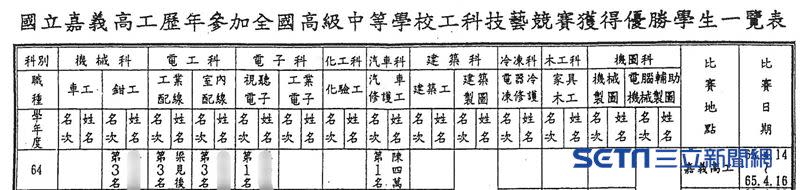 國立嘉義高工歷年參加全國高級中等學校工科技藝競賽獲得優勝學生一覽表
科別 機械科 電工科 電子科 化工科 汽車科 建築科 冷凍科 木工科 機圖科 比賽地點 比賽日期
職種 車工 鉗工 工業配線 室內配線 視聽電子 工業電子 化驗工 汽車修護工 建築工 建築製圖 電器冷凍修護 家具木工 機械製圖 電腦輔助機械製圖
學年度 名次 姓名 名次 姓名 名次 姓名 名次 姓名 名次 姓名 名次 姓名 名次 姓名 名次 姓名 名次 姓名 名次 姓名 名次 姓名 名次 姓名 名次 姓名 名次 姓名
64 第3名 第3名 梁見後 第3名 第1名 第1名 陳四萬 嘉義高工 14
65.4.16
SETN 三立新聞網